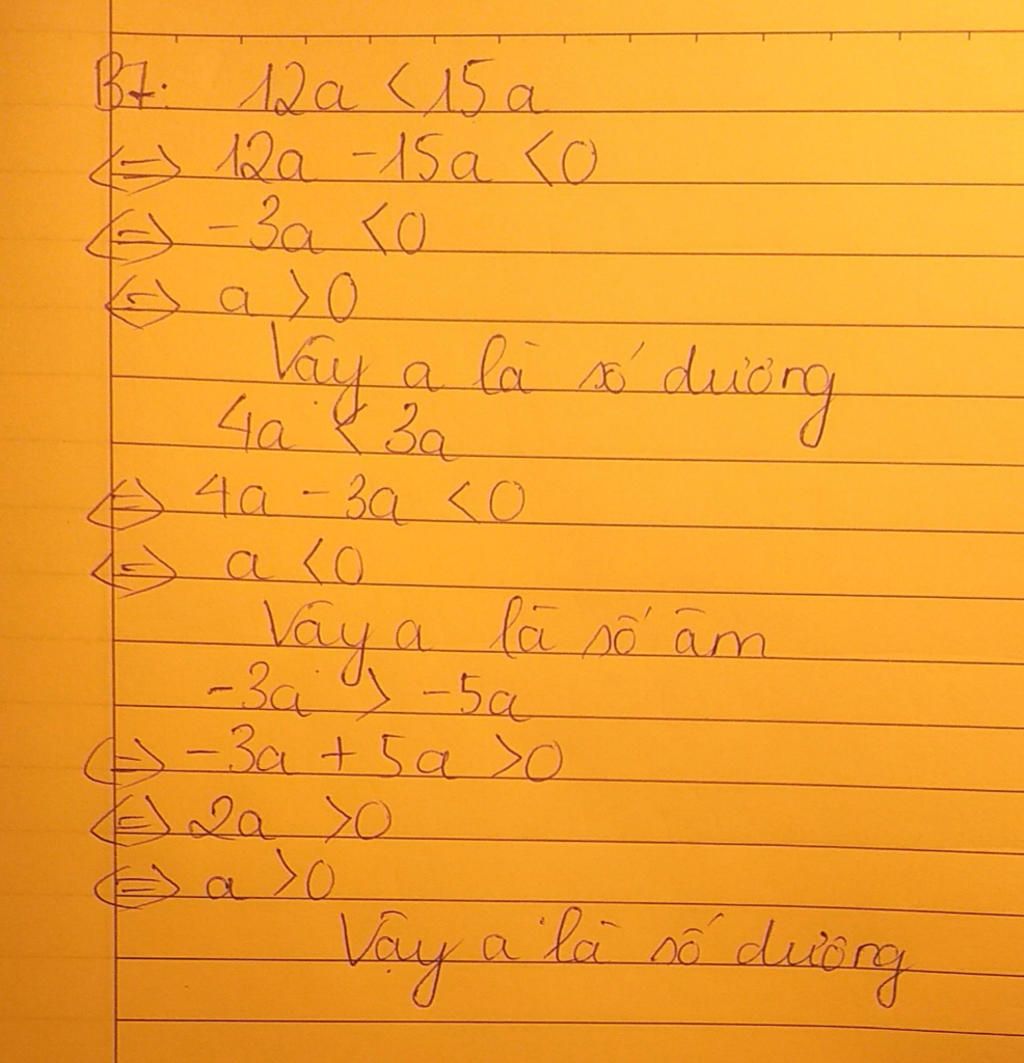 B7: 12a < 15a
<=> 12a - 15a < 0
<=> -3a < 0
<=> a > 0
Vậy a là số dương
4a < 3a
<=> 4a - 3a < 0
<=> a < 0
Vậy a là số âm
-3a > -5a
<=> -3a + 5a > 0
<=> 2a > 0
<=> a > 0
Vậy a là số dương